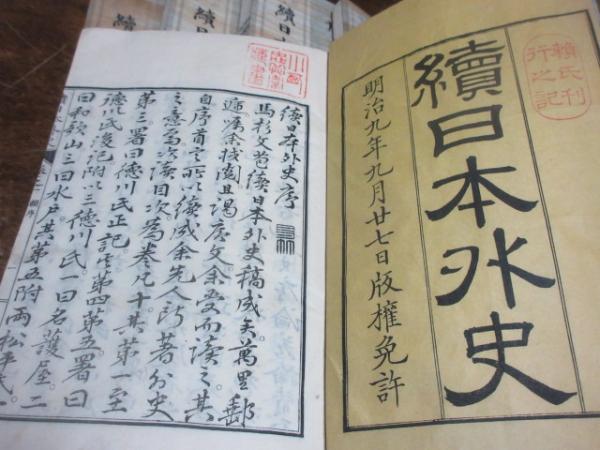 續日本外史
明治九年九月廿七日版權免許
賴氏刊
行之記
續日本外史序
馬杉文苞續日本外史稿成矣萬里郵
遞属余校閲且謁序文余受而讀之其
自序首言所以續成余先人所著外史
之意焉次目次為卷凡十其第一至
第三署曰德川氏正記第四第五署曰
德川氏後記附以三德川氏一曰名護座二
曰和歌山三曰水戸其第五附兩松平氏一
續日
續日